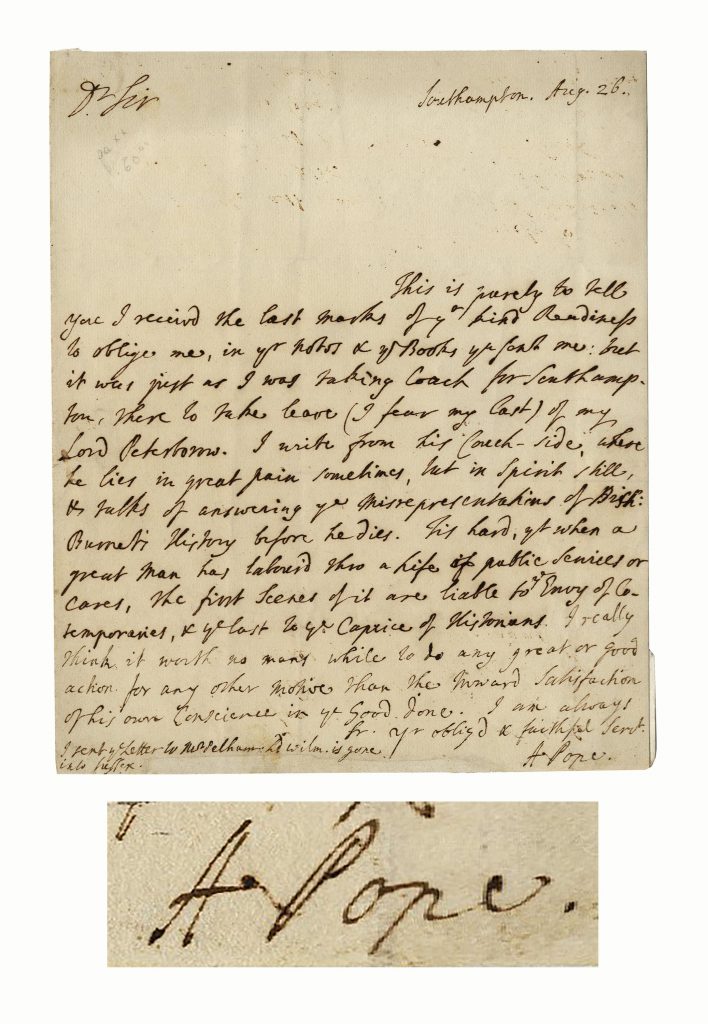 Dr Sir
Southampton. Aug. 26.
This is purely to tell
you I receivd the last marks of yr kind Readiness
to oblige me, in yr Notes & ye Books yu sent me: but
it was just as I was taking Coach for Southamp-
ton, there to take leave (I fear my last) of my
Lord Peterborow. I write from his Couch-side, where
he lies in great pain sometimes, but in Spirit still,
& talks of answering ye Misrepresentations of Bish:
Burnet's History before he dies. Tis hard, yt when a
great Man has labour'd thro a Life of public Services or
Cares, the first Scenes of it are liable to ye Envy of Co-
temporaries, & ye last to ye Caprice of Historians. I really
think it worth no mans while to do any great or good
action for any other Motive than the Inward Satisfaction
of his own Conscience in ye Good done. I am always
Sr. Yr oblig'd & faithful Servt.
A Pope.
I sent ye Letter to Mr Pelham. Ld Wilm. is gone
into Sussex.
A Pope.